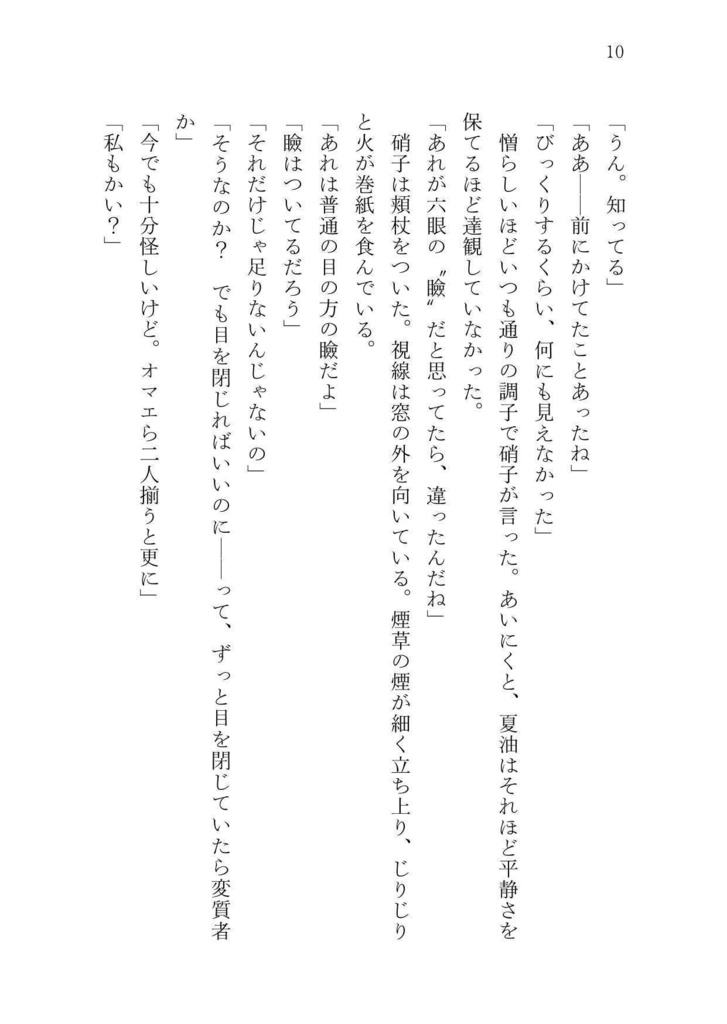 10
「うん。知ってる」
「ああ――前にかけてたことあったね」
「びっくりするくらい、何にも見えなかった」
　憎らしいほどいつも通りの調子で硝子が言った。あいにくと、夏油はそれほど平静さを
保てるほど達観していなかった。
「あれが六眼の〝瞼〟だと思ってたら、違ったんだね」
　硝子は頬杖をついた。視線は窓の外を向いている。煙草の煙が細く立ち上り、じりじり
と火が巻紙を食んでいる。
「あれは普通の目の方の瞼だよ」
「瞼はついてるだろう」
「それだけじゃ足りないんじゃないの」
「そうなのか？　でも目を閉じればいいのに――って、ずっと目を閉じていたら変質者
か」
「今でも十分怪しいけど。オマエら二人揃うと更に」
「私もかい？」